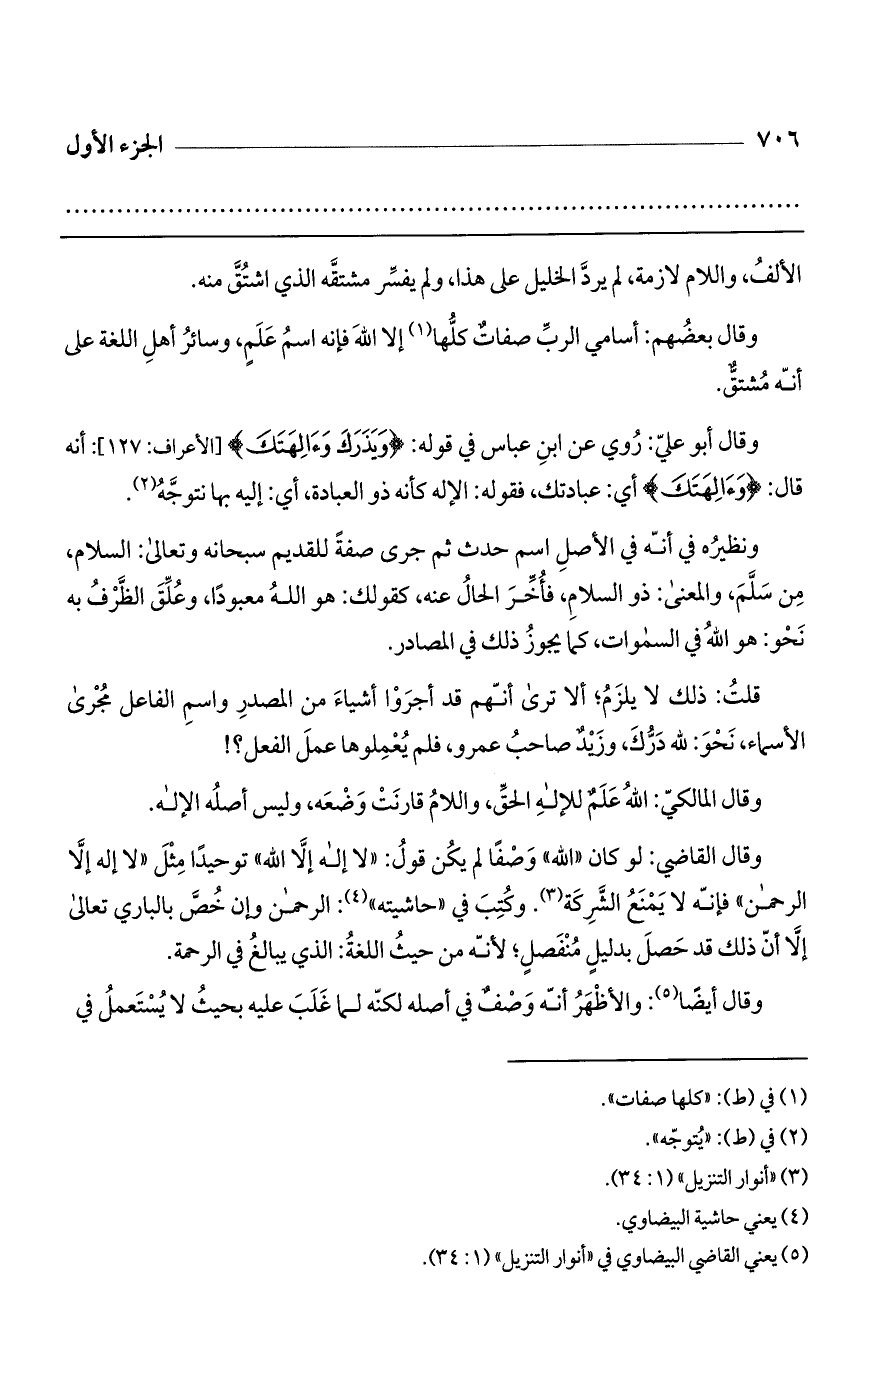 ٧٠٦ ــــــــــــــــ الجزء الأول
................................................................................
الألفُ، واللام لازمة، لم يردَّ الخليل على هذا، ولم يفسِّر مشتقَّه الذي اشتُقَّ منه.
وقال بعضُهم: أسامي الربِّ صفاتٌ كلُّها(١) إلا اللهَ فإنه اسمُ عَلَمٍ، وسائرُ أهلِ اللغة على
أنـّه مُشتقٌّ.
وقال أبو عليّ: رُوي عن ابنِ عباس في قوله: ﴿وَيَذَرَكَ وَءَالِهَتَكَ﴾ [الأعراف: ١٢٧]: أنه
قال: ﴿وَءَالِهَتَكَ﴾ أي: عبادتك، فقوله: الإله كأنه ذو العبادة، أي: إليه بها نتوجَّهُ(٢).
ونظيرُه في أنـّه في الأصلِ اسم حدث ثم جرى صفةً للقديم سبحانه وتعالىٰ: السلام،
مِن سَلَّمَ، والمعنىٰ: ذو السلامِ، فأُخِّـرَ الحالُ عنه، كقولك: هو اللـهُ معبودًا، وعُلِّقَ الظَّرْفُ به
نَحْو: هو اللهُ في السمٰوات، كما يجوزُ ذلك في المصادر.
قلتُ: ذلك لا يلزَمُ؛ ألا ترىٰ أنـّهم قد أجرَوْا أشياءَ من المصدرِ واسمِ الفاعل مُجْرىٰ
الأسماء، نَحْوَ: لله دَرُّكَ، وزَيْدٌ صاحبُ عمرو، فلم يُعْمِلوها عملَ الفعل؟!
وقال المالكيّ: اللهُ عَلَمٌ للإلـٰهِ الحقِّ، واللامُ قارنَتْ وَضْعَه، وليس أصلُه الإلـٰه.
وقال القاضي: لو كان «الله» وَصْفًا لم يكُن قولُ: «لا إلـٰه إلَّا الله» توحيدًا مِثْلَ «لا إله إلَّا
الرحمـٰن» فإنـّه لا يَمْنَعُ الشَّرِكَة(٣). وكُتِبَ في «حاشيته»(٤): الرحمـٰن وإن خُصَّ بالباري تعالىٰ
إلَّا أنّ ذلك قد حَصلَ بدليلٍ مُنْفَصلٍ؛ لأنـّه من حيثُ اللغةُ: الذي يبالغُ في الرحمة.
وقال أيضًا(٥): والأظْهَرُ أنـّه وَصْفٌ في أصله لكنّه لـما غَلَبَ عليه بحيثُ لا يُسْتَعملُ في
(١) في (ط): «كلها صفات».
(٢) في (ط): «يُتوجّه».
(٣) «أنوار التنزيل» (١: ٣٤).
(٤) يعني حاشية البيضاوي.
(٥) يعني القاضي البيضاوي في «أنوار التنزيل» (١: ٣٤).